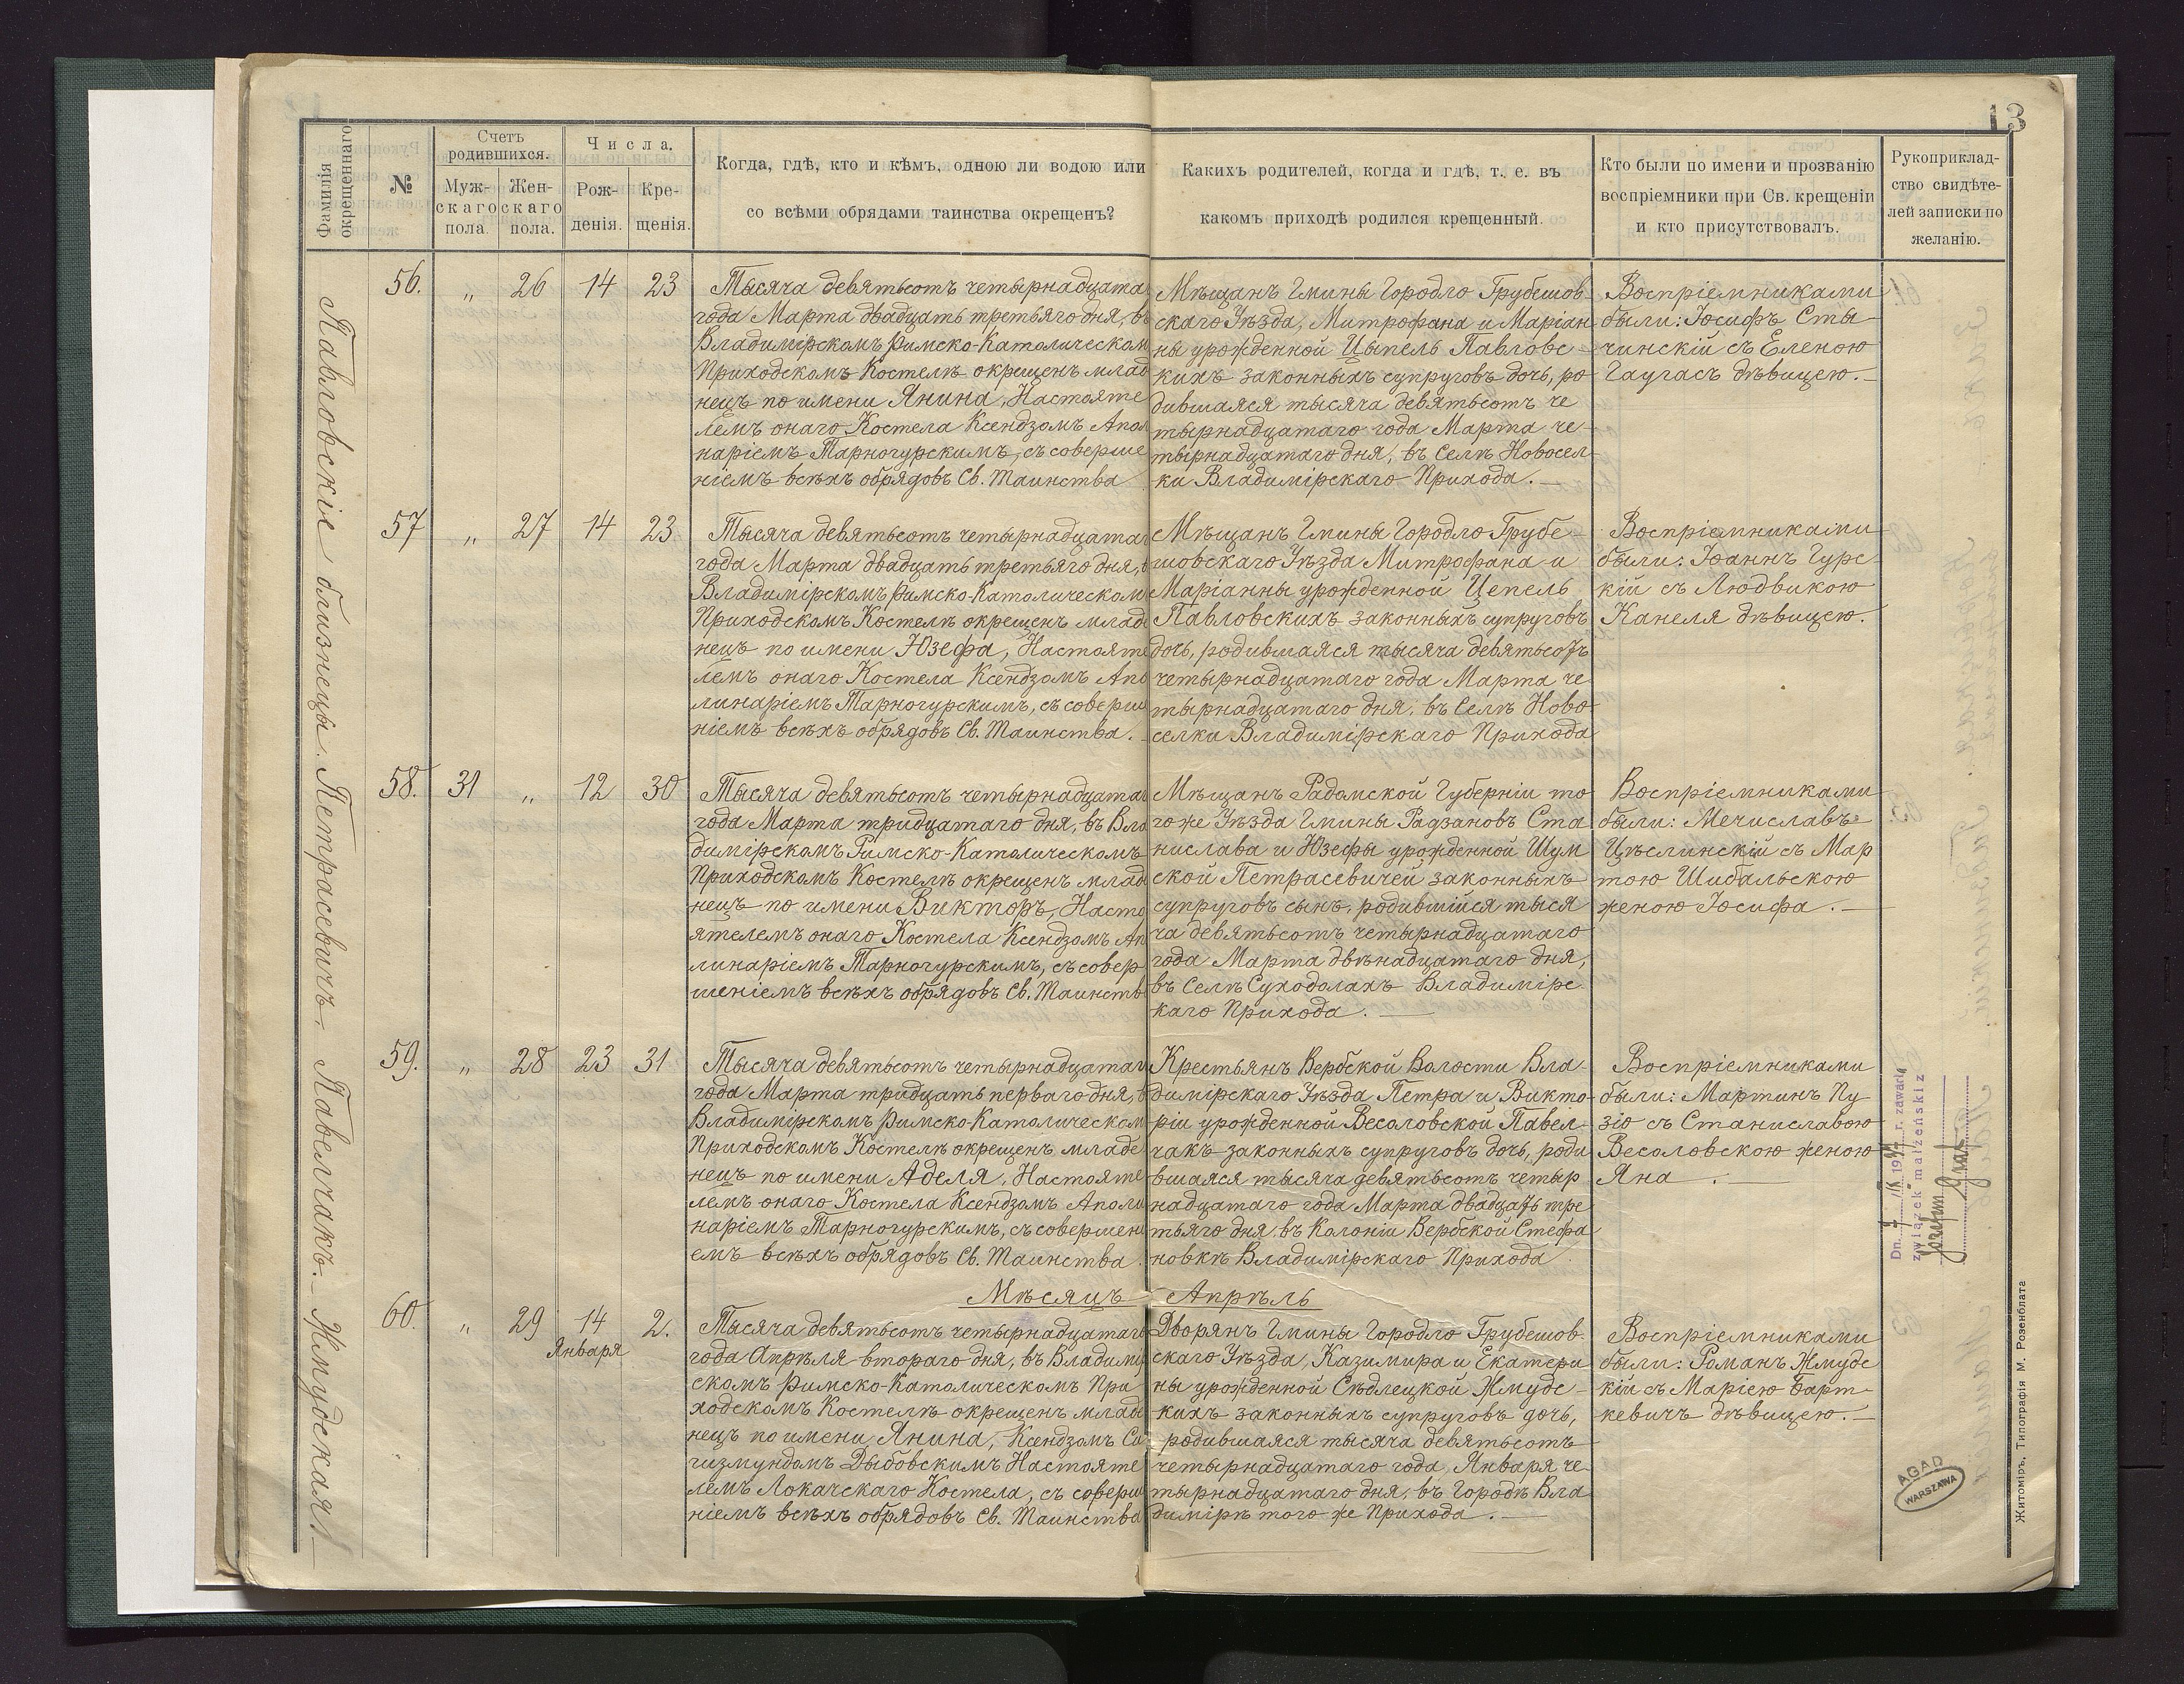 13
Фамилія
окрещеннаго
№
Счетъ
родившихся.
Муж-
скаго
пола.
Жен-
скаго
пола.
Числа.
Рож-
денія.
Кре-
щенія.
Когда, гдѣ, кто и кѣмъ, одною ли водою или
со всѣми обрядами таинства окрещенъ?
Какихъ родителей, когда и гдѣ, т. е. въ
какомъ приходѣ родился крещенный.
Кто были по имени и прозванію
воспріемники при Св. крещеніи
и кто присутствовалъ.
Рукоприклад-
ство свидѣте-
лей записки по
желанію.
Павловскіе близнецы. Петрасевичъ. Павелчакъ. Жмудская.
56. „ 26 14 23
Тысяча девятьсотъ четырнадцата
года Марта двадцать третьяго дня, въ
Владимірскомъ Римско-Католическом
Приходскомъ Костелѣ окрещенъ млад
нецъ по имени Янина, Настояте
лемъ онаго Костела Ксендзомъ Апол
наріемъ Тарногурскимъ, съ соверше
ніемъ всѣхъ обрядовъ Св. Таинства
Мѣщанъ Гмины Городло Грубешов-
скаго Уѣзда, Митрофана и Маріан
ны урожденной Цыпель Павловс-
кихъ законныхъ супруговъ дочь, ро
дившаяся тысяча девятьсотъ че
тырнадцатаго года Марта че-
тырнадцатаго дня, въ Селѣ Новосел-
ки Владимірскаго Прихода.
Воспріемниками
были: Іосифъ Сты-
чинскій съ Еленою
Гаугасъ дѣвицею.
57 „ 27 14 23
Тысяча девятьсотъ четырнадцатаг
года Марта двадцать третьяго дня, в
Владимірскомъ Римско-Католическом
Приходскомъ Костелѣ окрещенъ млад
нецъ по имени Юзефа, Настояте
лемъ онаго Костела Ксендзомъ Апо
линаріемъ Тарногурскимъ, съ соверш
ніемъ всѣхъ обрядовъ Св. Таинства.
Мѣщанъ Гмины Городло Грубе-
шовскаго Уѣзда Митрофана и
Маріанны урожденной Цепель
Павловскихъ законныхъ супруговъ
дочь, родившаяся тысяча девятьсотъ
четырнадцатаго года Марта че
тырнадцатаго дня, въ Селѣ Ново-
селки Владимірскаго Прихода
Воспріемниками
были: Іоаннъ Гурс-
кій съ Людвикою
Канеля дѣвицею.
58. 31 „ 12 30
Тысяча девятьсотъ четырнадцата
года Марта тридцатаго дня, въ Вла
димірскомъ Римско-Католическомъ
Приходскомъ Костелѣ окрещенъ млад
нецъ по имени Викторъ, Насто
ятелемъ онаго Костела Ксендзомъ Ап
линаріемъ Тарногурскимъ, съ совер
шеніемъ всѣхъ обрядовъ Св. Таинств
Мѣщанъ Радомской Губерніи то
гоже Уѣзда Гмины Радзановъ Ста
нислава и Юзефы урожденной Шум
ской Петрасевичей законныхъ
супруговъ сынъ, родившійся тыся
ча девятьсотъ четырнадцатаго
года Марта двѣнадцатаго дня,
въ Селѣ Суходолахъ Владимірс
каго Прихода.
Воспріемниками
были: Мечиславъ
Цѣслинскій съ Мар
тою Шибальскою
женою Іосифа.
59. „ 28 23 31
Тысяча девятьсотъ четырнадцатаг
года Марта тридцать перваго дня, в
Владимірскомъ Римско-Католическом
Приходскомъ Костелѣ окрещенъ младе
нецъ по имени Аделя, Настояте
лемъ онаго Костела Ксендзомъ Аполи
наріемъ Тарногурскимъ, съ совершені
емъ всѣхъ обрядовъ Св. Таинства.
Крестьянъ Вербской Волости Вла-
димірскаго Уѣзда Петра и Викто-
ріи урожденной Весоловской Павел-
чакъ законныхъ супруговъ дочь, роди
вшаяся тысяча девятьсотъ четыр
надцатаго года Марта двадцать тре
тьяго дня, въ Колоніи Вербской Стефа
новкѣ Владимірскаго Прихода
Воспріемниками
были: Мартинъ Пу
зіо съ Станиславою
Весоловскою женою
Яна.
Dn. 19 r. zawarł
związek małżeński z
Józefem
Мѣсяцъ Апрѣль
60. „ 29 14 2.
Января
Тысяча девятьсотъ четырнадцатаго
года Апрѣля втораго дня, въ Владимі
скомъ Римско-Католическомъ При
ходскомъ Костелѣ окрещенъ млад
нецъ по имени Янина, Ксендзомъ Си
гизмундомъ Дыбовскимъ Настояте
лемъ Локачскаго Костела, съ соверш
ніемъ всѣхъ обрядовъ Св. Таинства
Дворянъ Гмины Городло Грубешов-
скаго Уѣзда, Казимира и Екатери
ны урожденной Сѣдлецкой Жмудс-
кихъ законныхъ супруговъ дочь,
родившаяся тысяча девятьсотъ
четырнадцатаго года, Января че-
тырнадцатаго дня, въ Городѣ Вла
димірѣ того же Прихода.
Воспріемниками
были: Романъ Жмудс
кій съ Маріею Барт-
кевичъ дѣвицею.
AGAD
WARSZAWA
Житоміръ, Типографія М. Розенблата